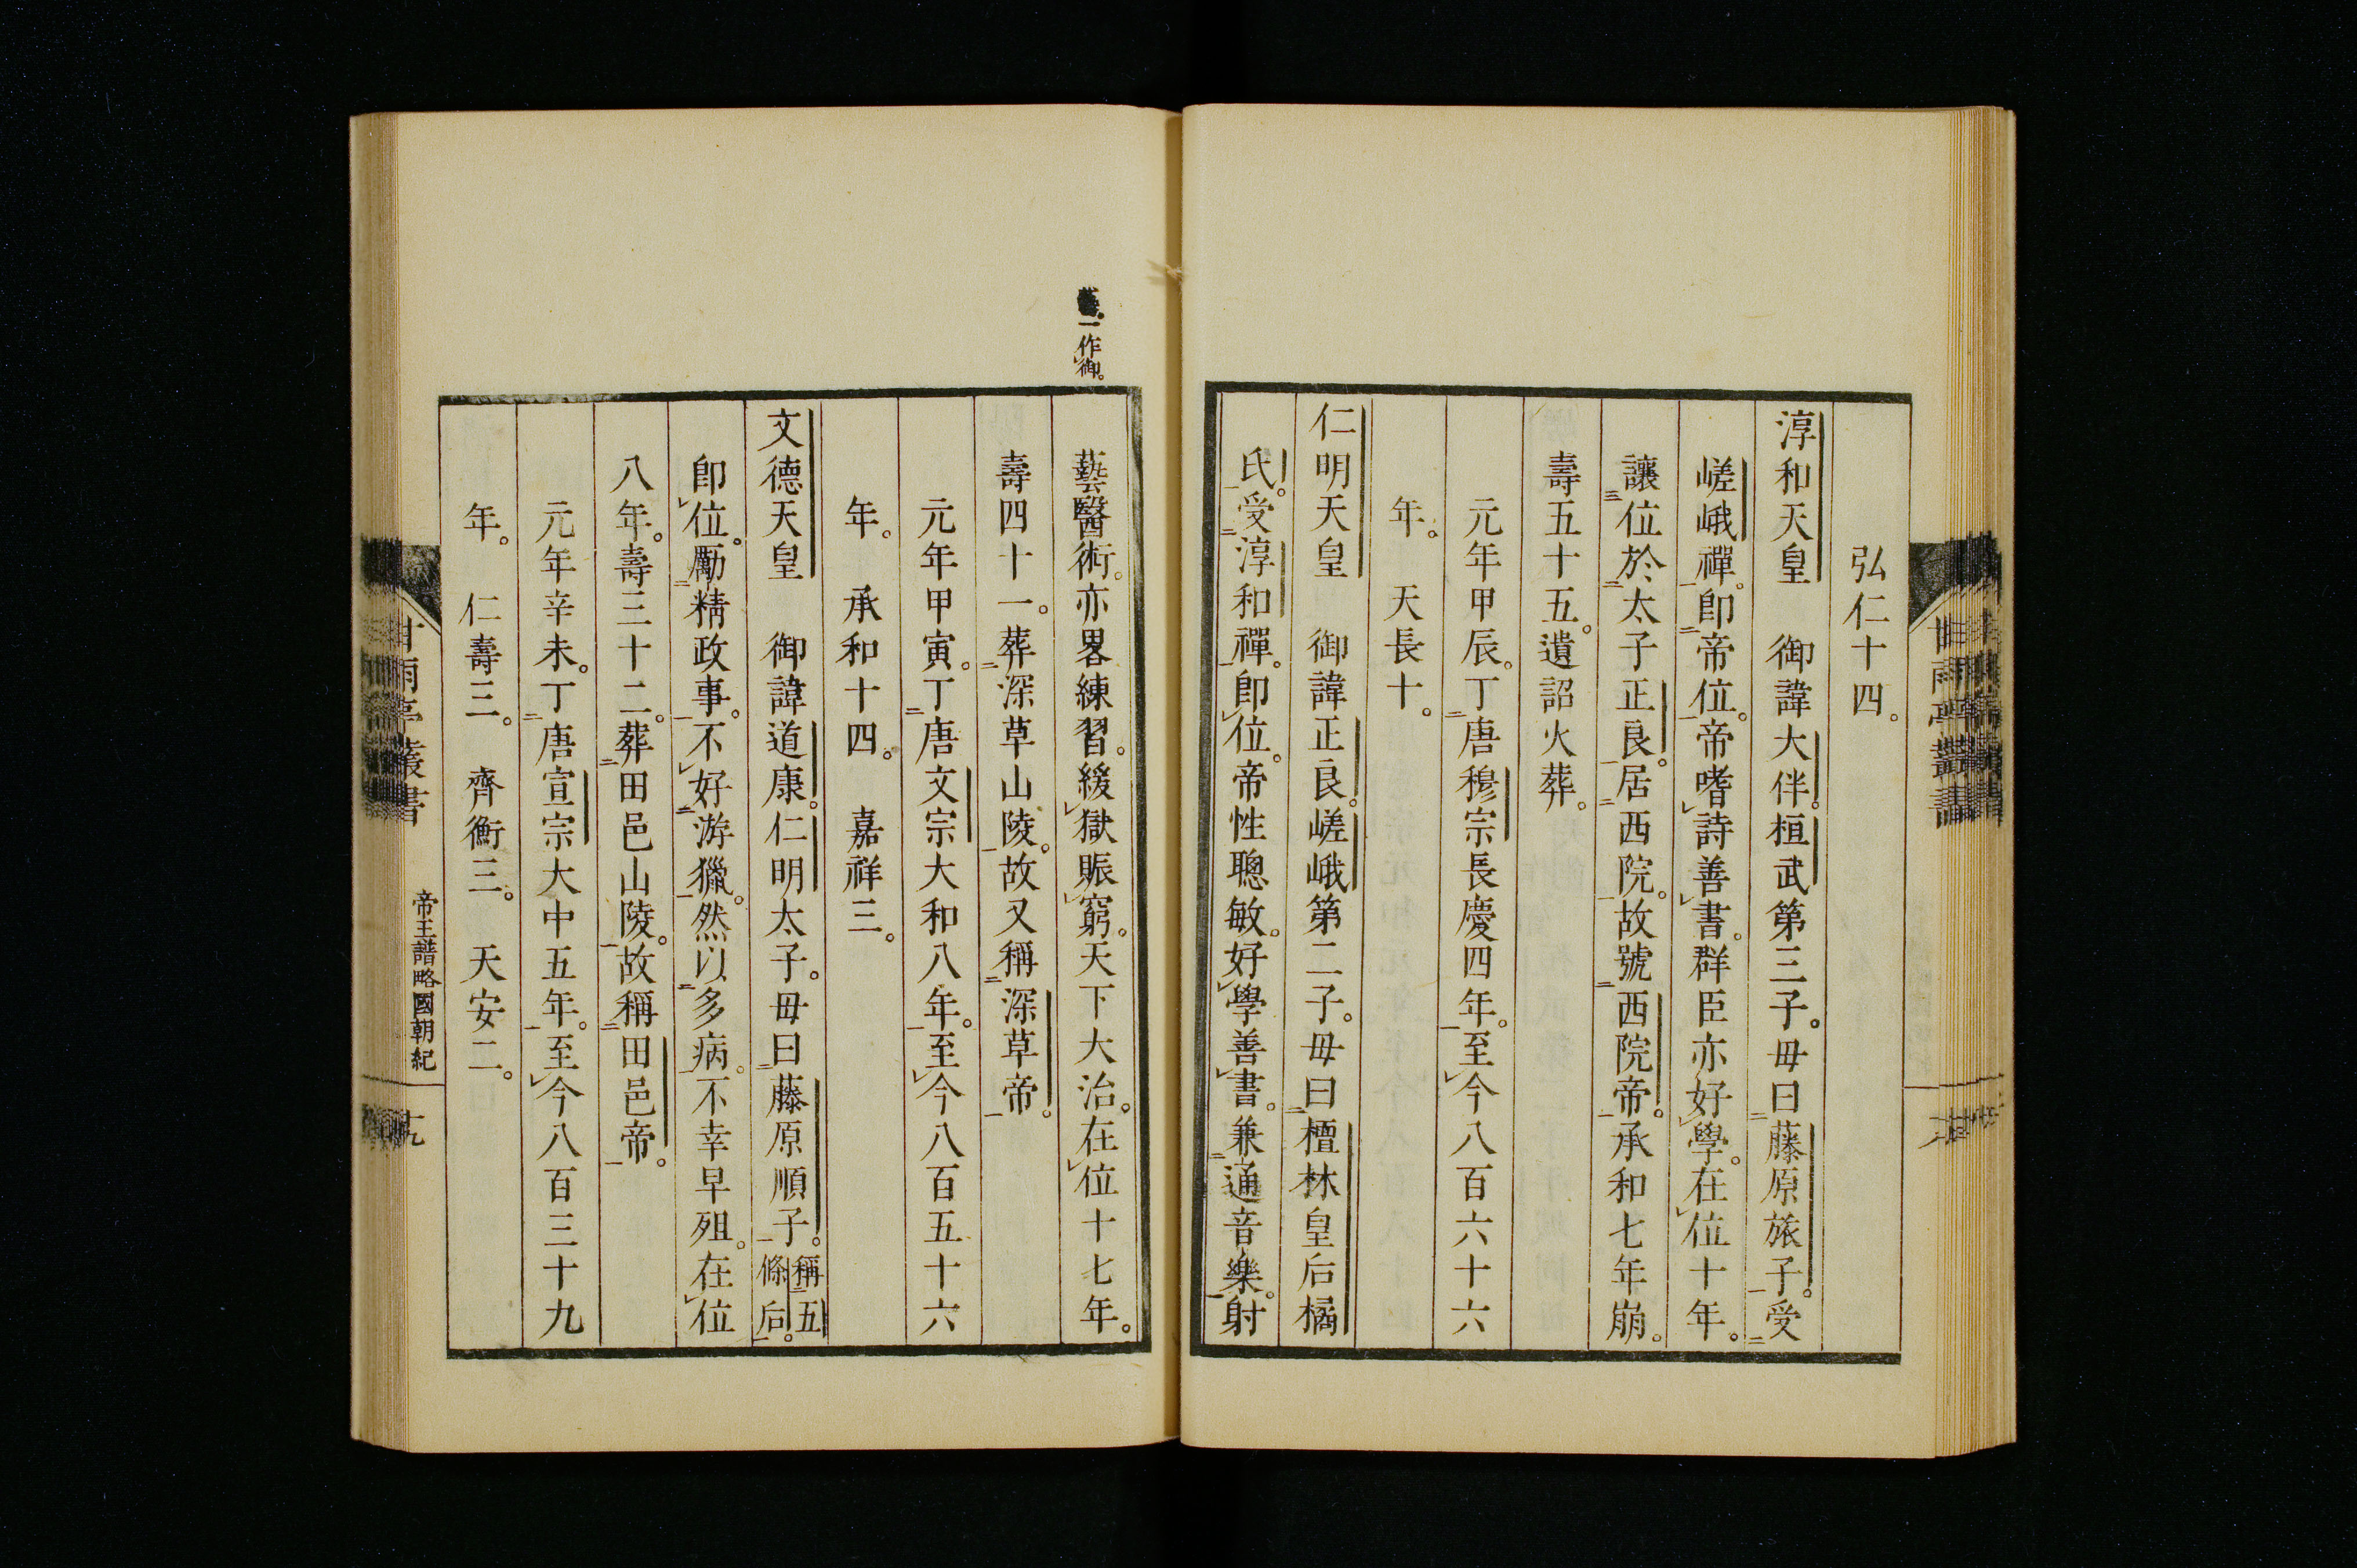 弘仁十四。
淳和天皇　御諱大伴。桓武第三子。母曰藤原旅子。受
嵯峨禪。即帝位。帝嗜詩善書。群臣亦好學。在位十年。
讓位於太子正良。居西院。故號西院帝。承和七年崩。
壽五十五。遺詔火葬。
元年甲辰。丁唐穆宗長慶四年。至今八百六十六
年。　天長十。
仁明天皇　御諱正良。嵯峨第二子。母曰檀林皇后橘
氏。受淳和禪。即位。帝性聰敏。好學善書。兼通音樂。射
一作御。
藝醫術。亦畧練習。緩獄賑窮。天下大治。在位十七年。
壽四十一。葬深草山陵。故又稱深草帝。
元年甲寅。丁唐文宗大和八年。至今八百五十六
年。　承和十四。　嘉祥三。
文德天皇　御諱道康。仁明太子。母曰藤原順子。稱五
條后。
即位。勵精政事。不好游獵。然以多病。不幸早殂。在位
八年。壽三十二。葬田邑山陵。故稱田邑帝。
元年辛未。丁唐宣宗大中五年。至今八百三十九
年。　仁壽三。　齊衡三。　天安二。
甘雨亭叢書
帝王譜略國朝紀
十九